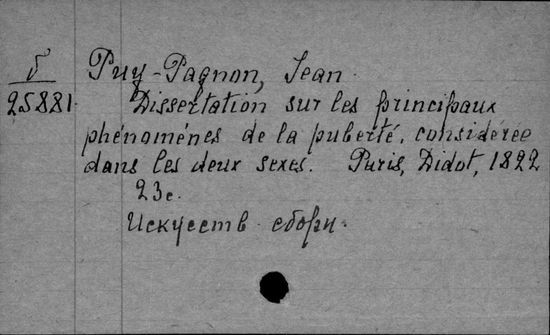 V
25881
Puy-Pagnon, Jean.
Dissertation sur les principaux
phénoménes de la puberté, considérée
dans les deux sexes. Paris, Didot, 1822
23c.
Искусств сборн.